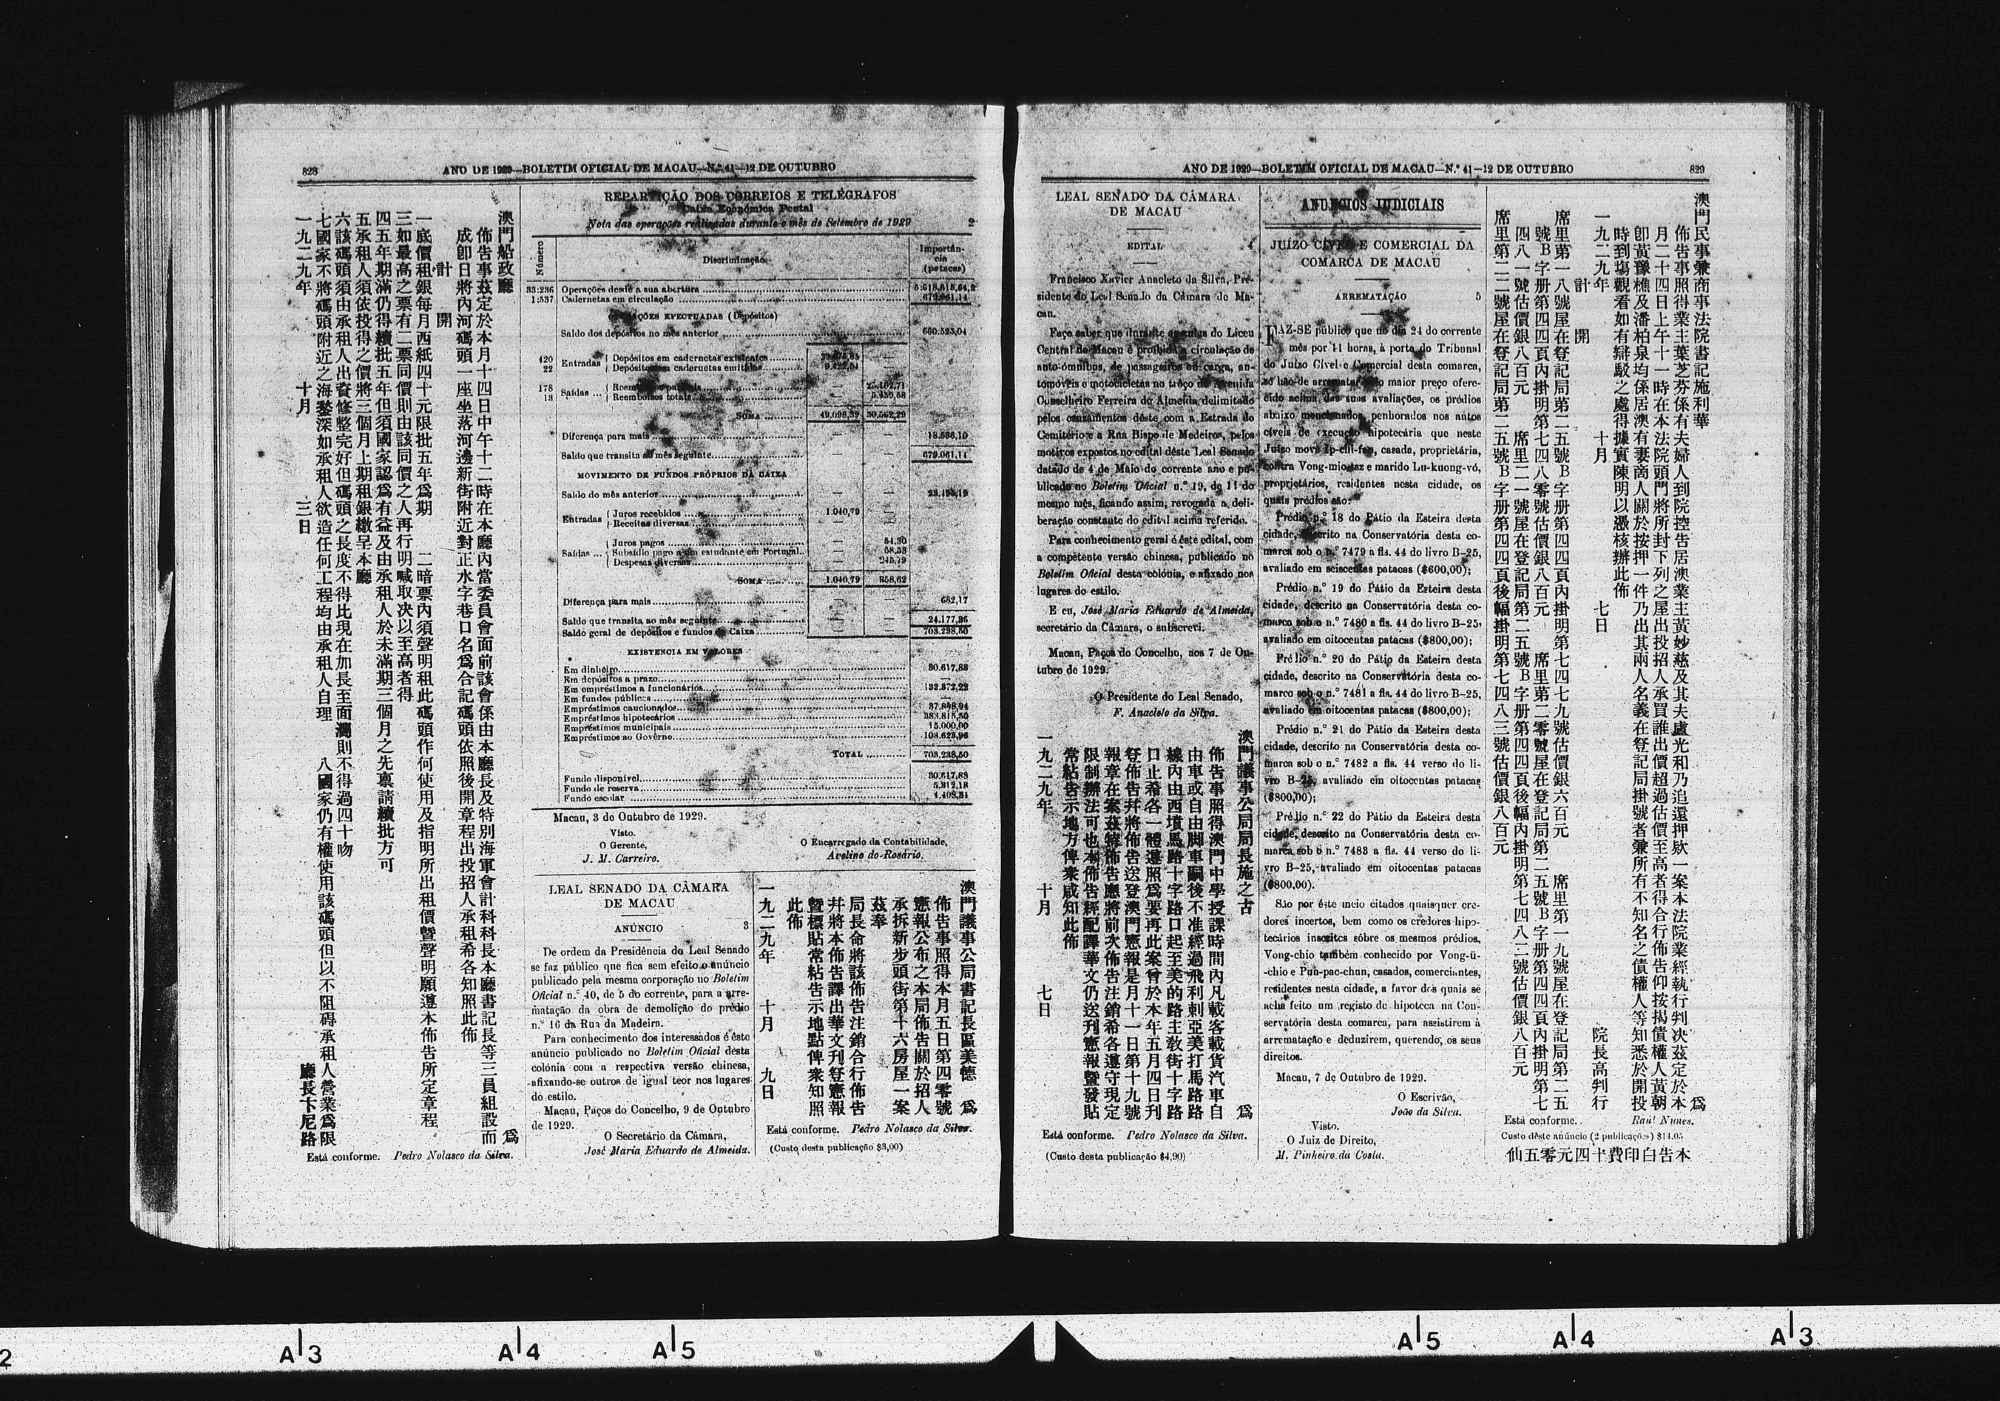 828
ANO DE 1929—BOLETIM OFICIAL DE MACAU—N.º 41—12 DE OUTUBRO
澳門船政廳
佈告事茲定於本月十四日中午十二時在本廳內當委員會面前該會係由本廳長及特別海軍會計科科長本廳書記長等三員組設而
成卽日將內河碼頭一座坐落河邊新街附近對正水字巷口名爲合記碼頭依照後開章程出投招人承租希各知照此佈
計開
一底價租銀每月西紙四十元限批五年爲期
二暗票內須聲明租此碼頭作何使用及指明所出租價曁聲明願遵本佈告所定章程
三如最高之票有二票同價則由該同價之人再行明喊取決以至高者得
四五年期滿仍得續批五年但須國家認爲有益及由承租人於未滿期三個月之先稟請續批方可
五承租人須依投得之價將三個月上期租銀繳呈本廳
六該碼頭須由承租人出資修整完好但碼頭之長度不得比現在加長至面濶則不得過四十吻
七國家不將碼頭附近之海潑深如承租人欲造任何工程均由承租人自理
八國家仍有權使用該碼頭但以不阻碍承租人營業爲限
一九二九年 十月 三日
廳長卞尼路
Está conforme. Pedro Nolasco da Silva.
REPARTIÇÃO DOS CORREIOS E TELÉGRAFOS
Caixa Económica Postal
Nota das operações realizadas durante o mês de Setembro de 1929 2
Número
Discriminação
Importância (patacas)
33:236 Operações desde a sua abertura
1:537 Cadernetas em circulação 679.061,14
OPERAÇÕES EFECTUADAS (Depósitos)
Saldo dos depósitos no mês anterior 660.525,04
420 Entradas Depósitos em cadernetas existentes
22 Depósitos em cadernetas emitidas
178 Saídas
13 Reembolsos totais
SOMA 49.098,39 30.562,29
Diferença para mais 18.536,10
Saldo que transita ao mês seguinte 679.061,14
MOVIMENTO DE FUNDOS PRÓPRIOS DA CAIXA
Saldo do mês anterior 23.495,19
Entradas Juros recebidos 1.040,79
Receitas diversas
Saídas Juros pagos 54,30
Subsídio pago a um estudante em Portugal 58,53
Despesas diversas 245,79
SOMA 1.040,79 358,62
Diferença para mais 682,17
Saldo que transita ao mês seguinte 24.177,36
Saldo geral de depósitos e fundos da Caixa 703.238,50
EXISTENCIA EM VALORES
Em dinheiro 30.617,88
Em depósitos a prazo
Em empréstimos a funcionários 132.872,22
Em fundos públicos
Empréstimos caucionados 37.808,94
Empréstimos hipotecários 383.815,50
Empréstimos municipais 15.000,00
Empréstimos ao Govêrno 103.623,96
TOTAL 703.238,50
Fundo disponível 30.617,88
Fundo de reserva 5.312,18
Fundo escolar 1.408,31
Macau, 3 de Outubro de 1929.
Visto.
O Gerente,
J. M. Carreiro.
O Encarregado da Contabilidade,
Avelino do Rosário.
LEAL SENADO DA CÂMARA
DE MACAU
ANÚNCIO 3
De ordem da Presidência do Leal Senado
se faz público que fica sem efeito o anúncio
publicado pela mesma corporação no Boletim
Oficial n.º 40, de 5 do corrente, para a arre-
matação da obra de demolição do prédio
n.º 16 da Rua da Madeira.
Para conhecimento dos interessados é êste
anúncio publicado no Boletim Oficial desta
colónia com a respectiva versão chinesa,
afixando-se outros de igual teor nos lugares
do estilo.
Macau, Paços do Concelho, 9 de Outubro
de 1929.
O Secretário da Câmara,
José Maria Eduardo de Almeida.
澳門議事公局書記長區美德 爲
佈告事照得本月五日第四零號
憲報公布之本局佈告關於招人
承拆新步頭街第十六房屋一案
茲奉
局長命將該佈告注銷合行佈告
幷將本佈告譯出華文刊登憲報
曁標貼常粘告示地點俾衆知照
此佈
一九二九年 十月 九日
Está conforme. Pedro Nolasco da Silva.
(Custo desta publicação $3,00)
ANO DE 1929—BOLETIM OFICIAL DE MACAU—N.º 41—12 DE OUTUBRO
829
LEAL SENADO DA CÂMARA
DE MACAU
EDITAL 4
Francisco Xavier Anacleto da Silva, Pre-
sidente do Leal Senado da Câmara de Ma-
cau.
Faço saber que durante as aulas do Liceu
Central de Macau é proïbida a circulação de
auto-ómnibus, de passageiros ou carga, au-
tomóveis e motocicletas no trôço da Avenida
Conselheiro Ferreira de Almeida, delimitado
pelos cruzamentos dêste com a Estrada do
Cemitério e a Rua Bispo de Medeiros, pelos
motivos expostos no edital dêste Leal Senado
datado de 4 de Maio do corrente ano e pu-
blicado no Boletim Oficial n.º 19, de 11 do
mesmo mês, ficando assim, revogada a deli-
beração constante do edital acima referido.
Para conhecimento geral é êste edital, com
a competente versão chinesa, publicado no
Boletim Oficial desta colónia, e afixado nos
lugares do estilo.
E eu, José Maria Eduardo de Almeida,
secretário da Câmara, o subscrevi.
Macau, Paços do Concelho, aos 7 de Ou-
tubro de 1929.
O Presidente do Leal Senado,
F. Anacleto da Silva.
澳門議事公局局長施之古 爲
佈告事照得澳門中學授課時間內凡載客載貨汽車自
由車或自由脚車嗣後不准經過飛利剌亞美打馬路路
線內由西墳馬路十字路口起至美的路主敎街十字路
口止希各一體遵照爲要再此案曾於本年五月四日刊
登佈告幷將佈告送登澳門憲報是月十一日第十九號
報章在案茲特佈告應將前次佈告注銷希各遵守現定
限制辦法可也本佈告經配譯華文仍送刊憲報曁發貼
常粘告示地方俾衆咸知此佈
一九二九年 十月 七日
Está conforme. Pedro Nolasco da Silva.
(Custo desta publicação $4,90)
ANÚNCIOS JUDICIAIS
JUÍZO CÍVEL E COMERCIAL DA
COMARCA DE MACAU
ARREMATAÇÃO 5
FAZ-SE público que no dia 24 do corrente
mês por 11 horas, à porta do Tribunal
do Juízo Cível e Comercial desta comarca,
se hão-de arrematar, ao maior preço ofere-
cido acima das suas avaliações, os prédios
abaixo mencionados, penhorados nos autos
cíveis de execução hipotecária que neste
Juízo move Ip-chi-fan, casada, proprietária,
contra Vong-mio-taz e marido Lu-kuong-vó,
proprietários, residentes nesta cidade, os
quais prédios são:
Prédio n.º 18 do Pátio da Esteira desta
cidade, descrito na Conservatória desta co-
marca sob o n.º 7479 a fls. 44 do livro B-25,
avaliado em seiscentas patacas ($600,00);
Prédio n.º 19 do Pátio da Esteira desta
cidade, descrito na Conservatória desta co-
marca sob o n.º 7480 a fls. 44 do livro B-25,
avaliado em oitocentas patacas ($800,00);
Prédio n.º 20 do Pátio da Esteira desta
cidade, descrito na Conservatória desta co-
marca sob o n.º 7481 a fls. 44 do livro B-25,
avaliado em oitocentas patacas ($800,00);
Prédio n.º 21 do Pátio da Esteira desta
cidade, descrito na Conservatória desta co-
marca sob o n.º 7482 a fls. 44 verso do li-
vro B-25, avaliado em oitocentas patacas
($800,00);
Prédio n.º 22 do Pátio da Esteira desta
cidade, descrito na Conservatória desta co-
marca sob o n.º 7483 a fls. 44 verso do li-
vro B-25, avaliado em oitocentas patacas
($800,00).
São por êste meio citados quaisquer cre-
dores incertos, bem como os credores hipo-
tecários inscritos sôbre os mesmos prédios,
Vong-chio também conhecido por Vong-ü-
-chio e Pun-pac-chun, casados, comerciantes,
residentes nesta cidade, a favor dos quais se
acha feito um registo de hipoteca na Con-
servatória desta comarca, para assistirem à
arrematação e deduzirem, querendo, os seus
direitos.
Macau, 7 de Outubro de 1929.
O Escrivão,
João da Silva.
Visto.
O Juiz de Direito,
M. Pinheiro da Costa.
澳門民事兼商事法院書記施利華 爲
佈告事照得業主葉芝芬係有夫婦人到院控告居澳業主黃妙慈及其夫盧光和乃追還押欵一案本法院業經執行判决茲定於本
月二十四日上午十一時在本法院頭門將所封下列之屋出投招人承買誰出價超過估價至高者得合行佈告仰按揭債權人黃朝
卽黃豫樵及潘柏泉均係居澳有妻商人關於按押一件乃出其兩人名義在登記局掛號者兼所有不知名之債權人等知悉於開投
時到塲觀看如有辯駁之處得據實陳明以憑核辦此佈
一九二九年 十月 七日 院長高判行
計開
席里第一八號屋在登記局第二五號B字册第四四頁內掛明第七四七九號估價銀六百元
席里第一九號屋在登記局第二五
號B字册第四四頁內掛明第七四八零號估價銀八百元
席里第二零號屋在登記局第二五號B字册第四四頁內掛明第七
四八一號估價銀八百元
席里二一號屋在登記局第二五號B字册第四四頁後幅內掛明第七四八二號估價銀八百元
席里第二二號屋在登記局第二五號B字册第四四頁後幅掛明第七四八三號估價銀八百元
Está conforme. Raul Nunes.
Custo dêste anúncio (2 publicações) $14,05
仙五零元四十費印白告本
2
A3
A4
A5
A5
A4
A3